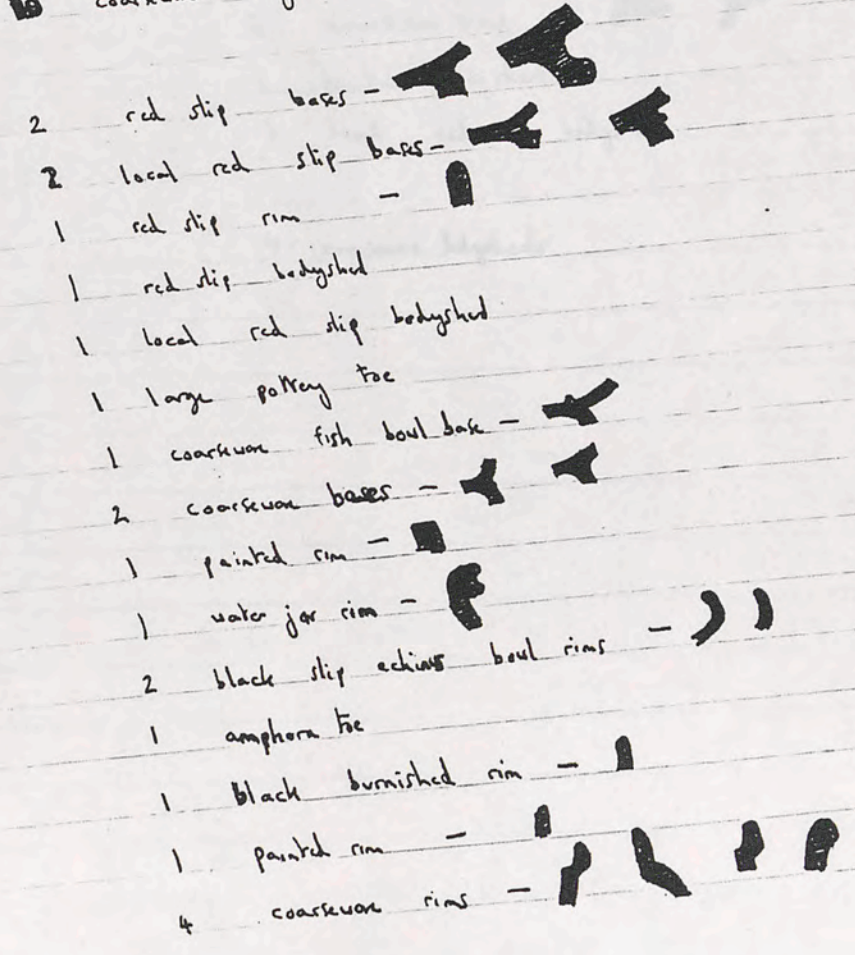 2 red slip bases -
2 local red slip bases -
1 red slip rim -
1 red slip bodyshed
1 local red slip bodyshed
1 large pottery toe
1 coarseware fish bowl base -
2 coarseware bases -
1 painted rim -
1 water jar rim -
2 black slip echinus bowl rims -
1 amphora toe
1 black burnished rim -
1 painted rim -
4 coarseware rims -